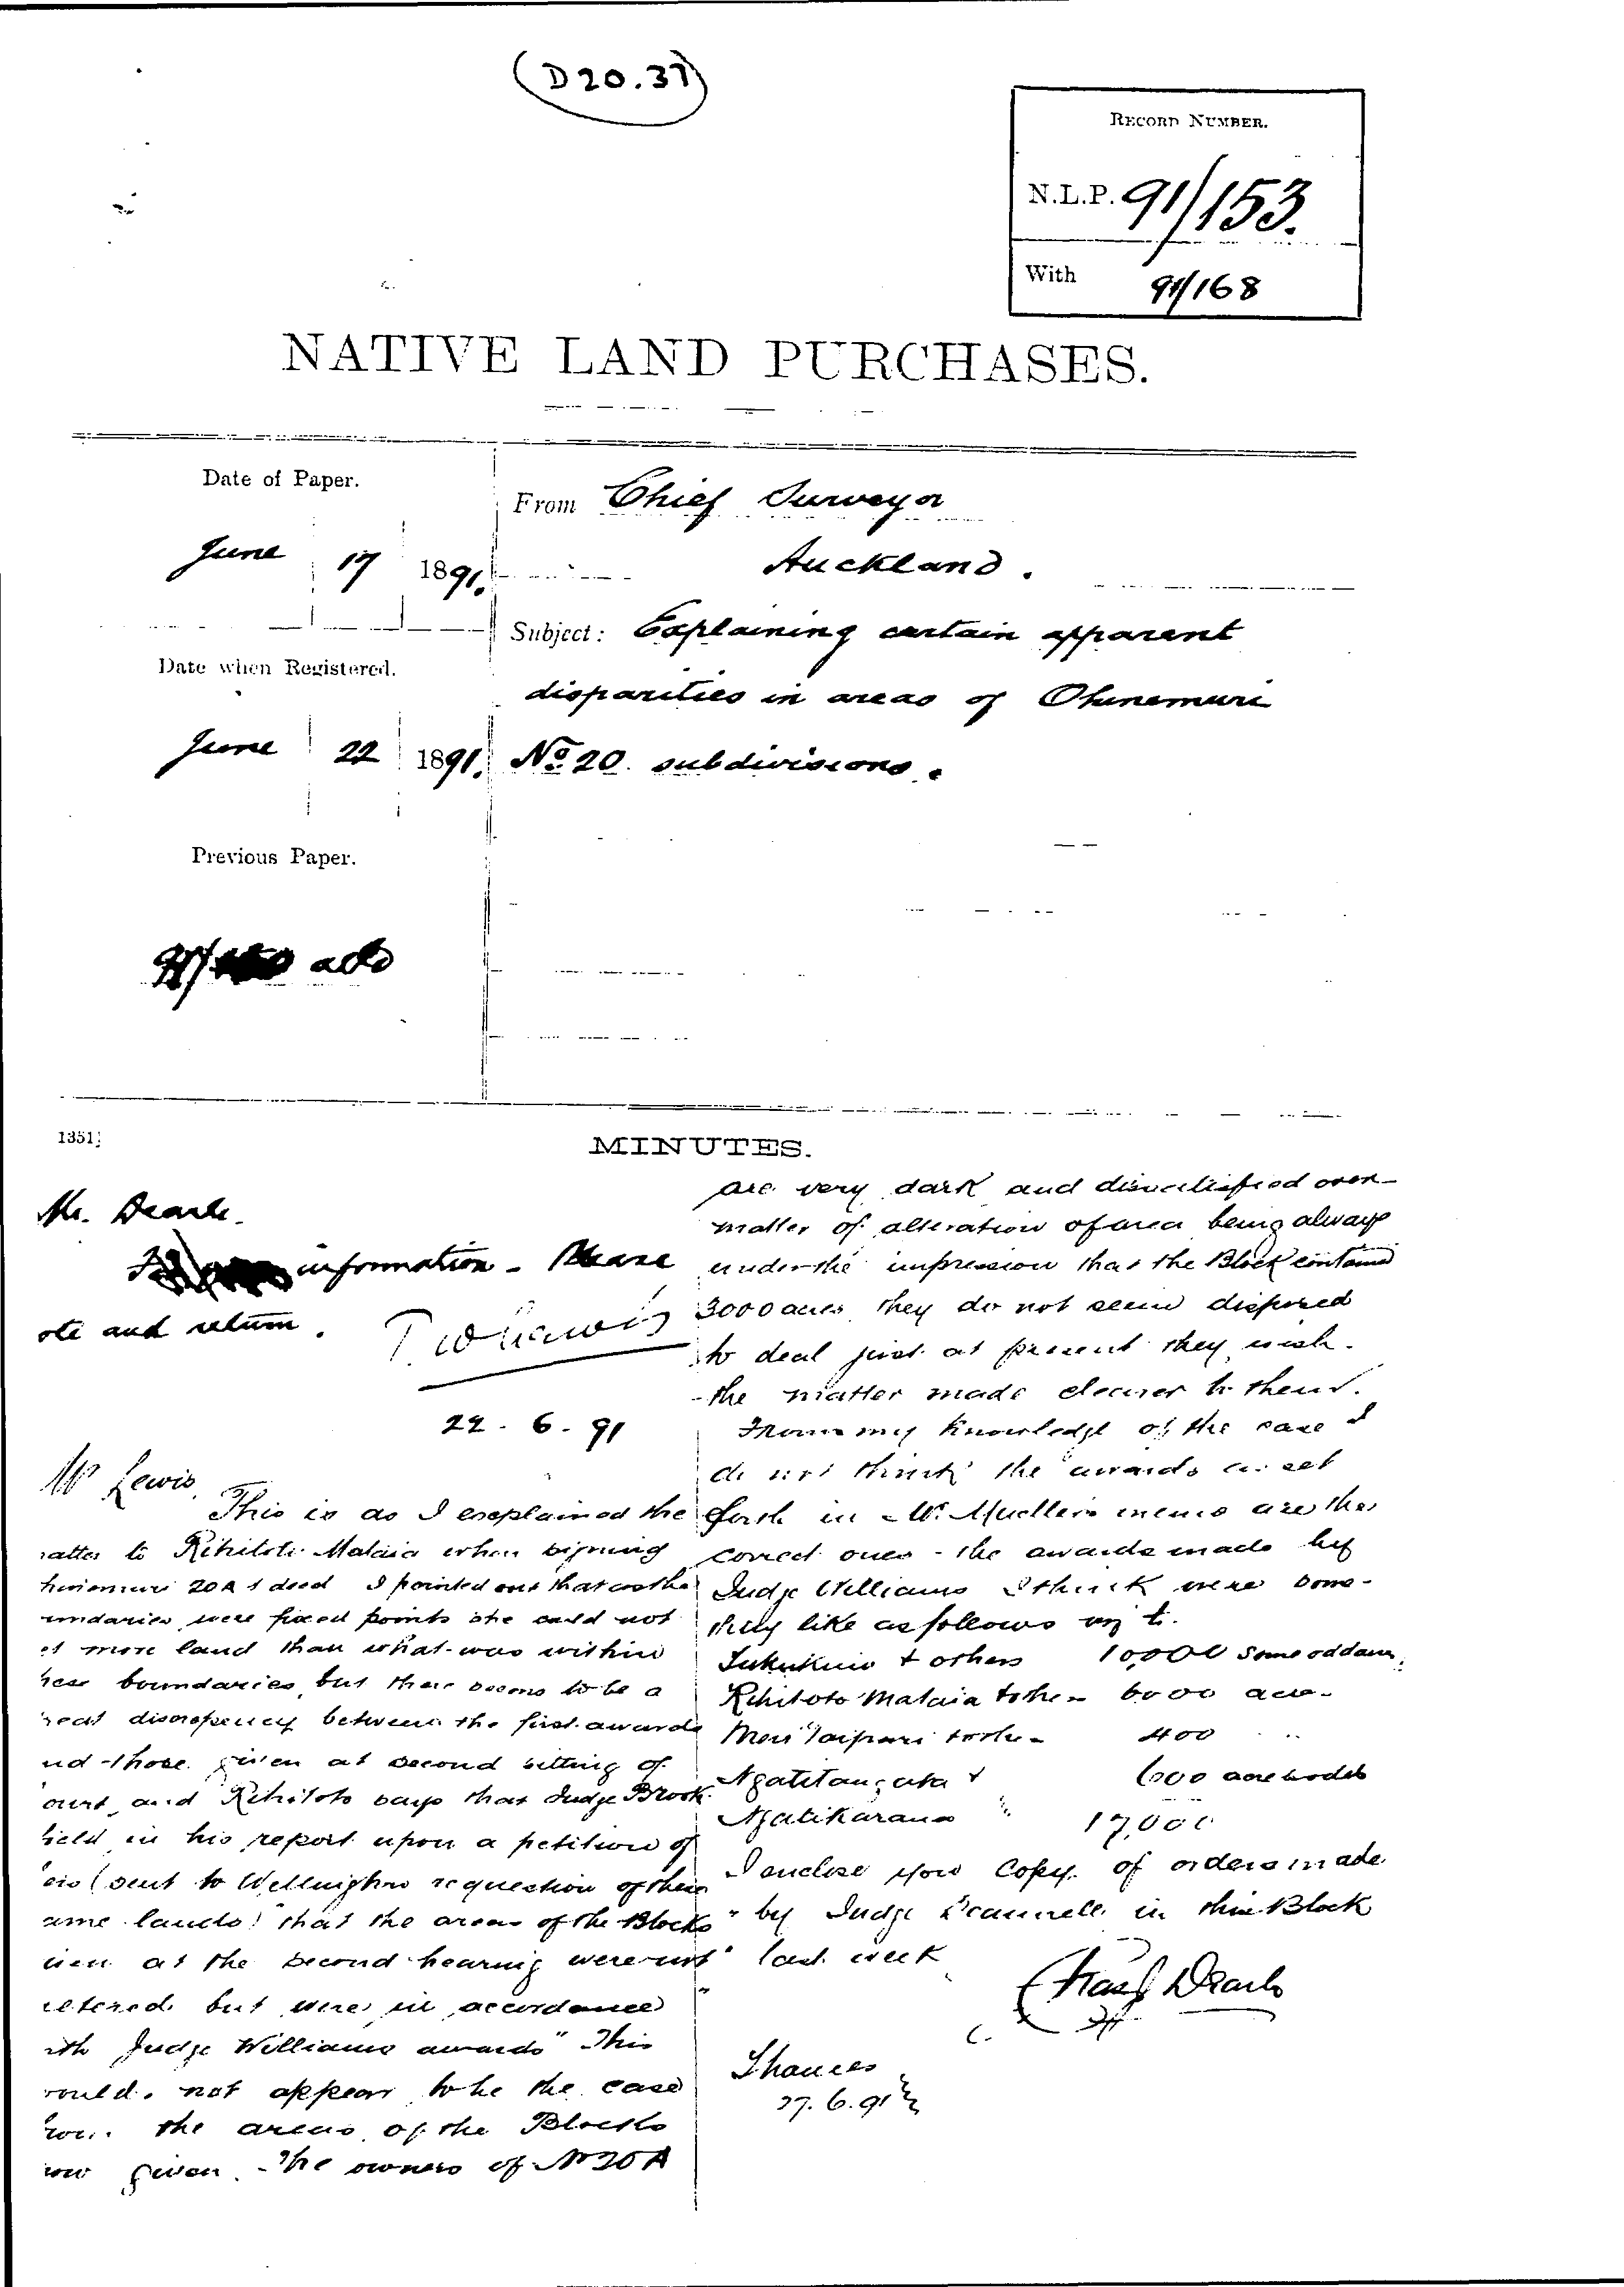 (D20.37)
RECORD NUMBER.
N.L.P. 91/153.
With 91/168
NATIVE LAND PURCHASES.
Date of Paper.
From Chief Surveyor
June 17 1891.
Auckland.
Subject: Explaining certain apparent
Date when Registered.
disparities in areas of Ohinemuri
June 22 1891. No 20. subdivisions.
Previous Paper.
91/
1351]
MINUTES.
Mr.
information. Please
and return.
22. 6. 91
Mr Lewis,
This is as I explained the
to Rihitoto Mataia when signing
20A 1 deed I pointed out that as the
were fixed points she could not
more land than what was within
boundaries, but there seems to be a
discrepency between the first awards
those given at second sitting of
and Rihitoto says that Judge Brook
in his report upon a petition of
(sent to Wellington re question of these
lands) that the areas of the Blocks
at the second hearing were not
but were in accordance
Judge Williams awards" This
not appear to be the case
the areas of the Blocks
given. The owners of No 20A
are very dark and dissatisfied over
matter of alteration of area being always
under the impression that the Block contained
3000 acres they do not seem disposed
to deal just at present they wish
the matter made clearer to them.
From my knowledge of the case I
do not think the awards as set
forth in Mr. Muellers memo are the
correct ones - the awards made by
Judge Williams I think were some-
thing like as follows viz t.
& others 10,000 some odd acres.
Rihitoto Mataia & others 6000 acres
Meri Taipari & others 400 "
&
600 acre
17,000
I enclose you Copy of orders made
by Judge Scannell in this Block
last week
27. 6. 91